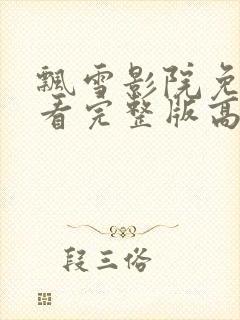 飘雪影院免
看完整版高
段三俗